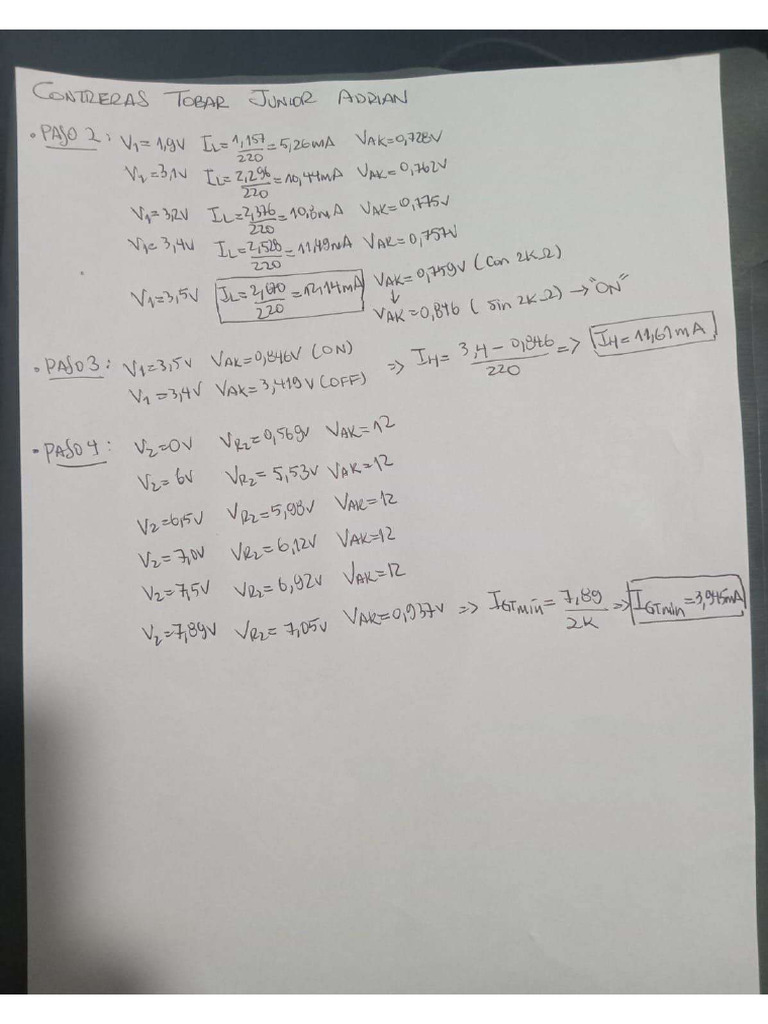 CONTRERAS TOBAR JUNIOR ADRIAN
• PASO 2: V1=1,9V IL=1,157/220=5,26mA VAK=0,728V
V1=3,1V IL=2,296/220=10,44mA VAK=0,762V
V1=3,2V IL=2,376/220=10,8mA VAK=0,775V
V1=3,4V IL=2,528/220=11,49mA VAK=0,757V
V1=3,5V IL=2,670/220=12,14mA VAK=0,759V (Con 2KΩ)
↓
VAK=0,846 (sin 2KΩ) → "ON"
• PASO 3: V1=3,5V VAK=0,846V (ON)
V1=3,4V VAK=3,419V (OFF) => IH=3,4-0,846/220 => IH=11,61mA
• PASO 4: V2=0V VR2=0,569V VAK=12
V2=6V VR2=5,53V VAK=12
V2=6,5V VR2=5,98V VAK=12
V2=7,0V VR2=6,12V VAK=12
V2=7,5V VR2=6,92V VAK=12
V2=7,89V VR2=7,05V VAK=0,937V => IGTmin=7,89/2K => IGTmin=3,945mA